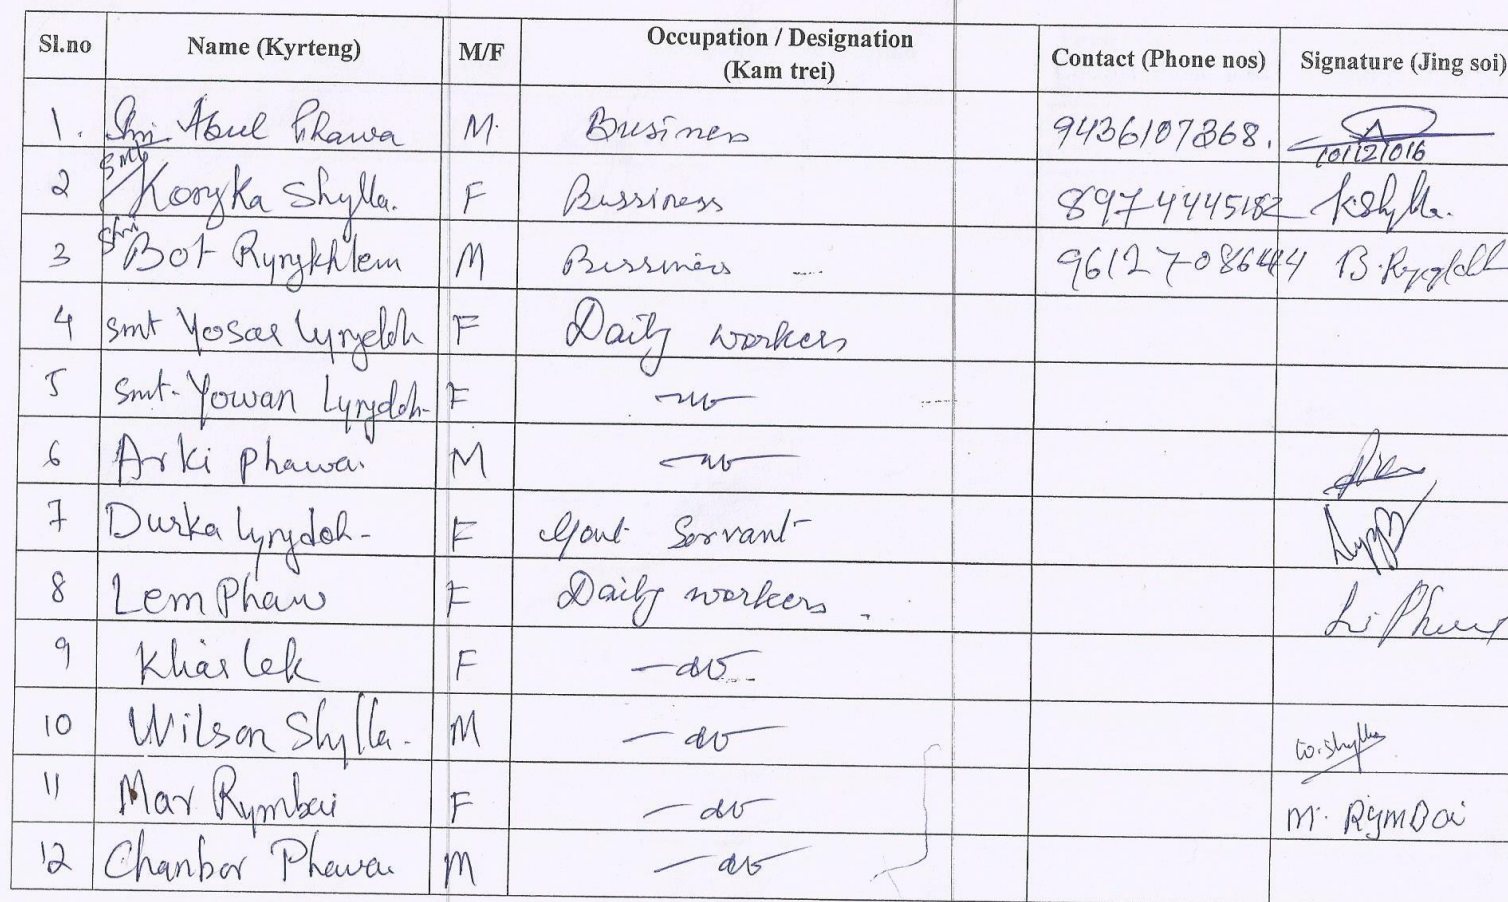 Sl.no Name (Kyrteng) M/F Occupation / Designation (Kam trei) Contact (Phone nos) Signature (Jing soi)
1. Shri Abul Phawa M. Business 9436107368.
10/12/2016
2 Smt Korgka Shylla. F Bussiness 8974445182 K Shylla.
3 Shri Bot Ryngkhlem M Bussiness
4 Smt Yosar Lyngdoh F Daily workers
5 Smt- Yowan Lyngdoh- F -do-
6 Arki Phawa. M -do-
7 Durka Lyngdoh- F Govt Servant
8 Lem Phaw F Daily workers.
9 Khar Lek F -do-
10 Wilson Shylla. M -do- W. Shylla
11 Mar Rymbai F -do- M. RYMBai
12 Chanbor Phawa M -do-